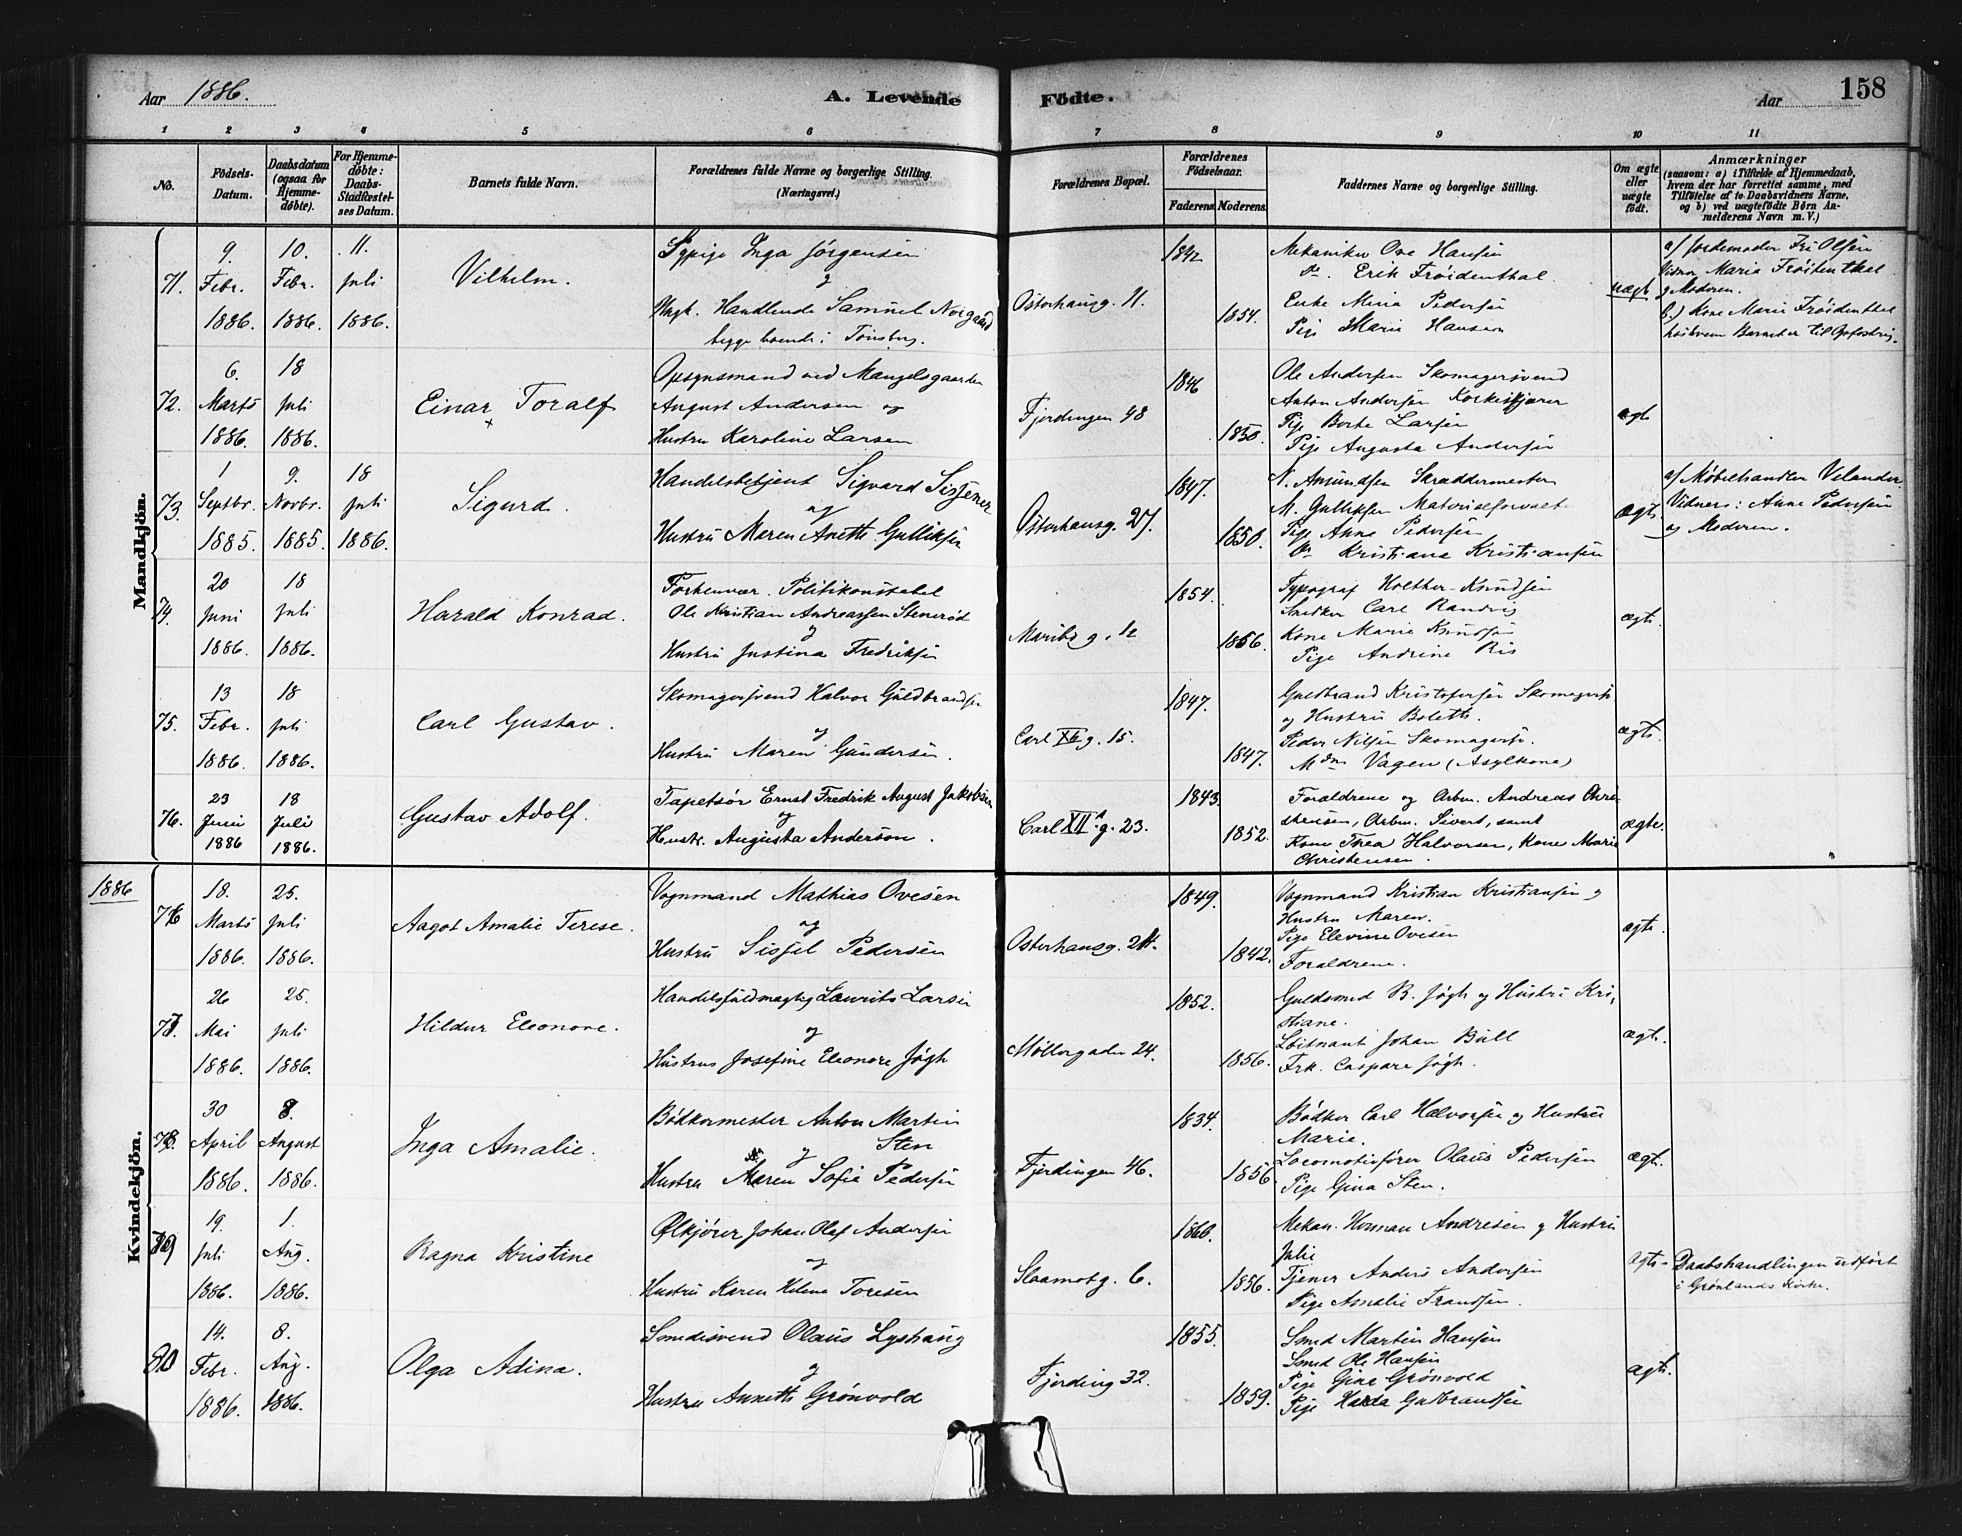 Aar 1886.
A. Levende Födte.
Aar
158
1 2 3 4 5 6 7 8 9 10 11
No.
Födsels-Datum.
Daabsdatum (ogsaa for Hjemme-döbte).
For Hjemme-döbte: Daabs-Stadfæstel-ses Datum.
Barnets fulde Navn.
Forældrenes fulde Navne og borgerlige Stilling. (Næringsvei.)
Forældrenes Bopæl.
Forældrenes Födselsaar.
Faderens. Moderens.
Faddernes Navne og borgerlige Stilling.
Om ægte eller uægte födt.
Anmærkninger
(saasom: a) i Tilfælde af Hjemmedaab,
hvem der har forrettet samme, med
Tilföielse af to Daabsvidners Navne,
og b) ved uægtefödte Börn An-
melderens Navn m. V.)
Mandkjön.
71.
9. Febr. 1886.
10. Febr. 1886.
11. Juli 1886.
Vilhelm.
Sypige Inga Jørgensen
og
Ungk. Handlende Samuel Norgaard
begge boende i Tønsberg.
Osterhausg. 11.
1842
1854.
Mekaniker Ove Hansen
Do. Erik Frøidenthal
Enke Mina Pedersen
Pige Marie Hansen
uægt
a) Jordemoder Fru Olsen
Vidner Maria Frøidenthal
og Moderen.
b.) Kone Marie Frøidenthal
hos hvem Barnet er til Opfostring.
72.
6. Marts 1886.
18 Juli 1886.
Einar Toralf
Opsynsmand ved Mangelsgaarden
August Andersen og
Hustru Karoline Larsen
Fjerdingen 48
1846
1850.
Ole Andersen Skomagersvend
Anton Andersen Korkeskjærer
Pige Berte Larsen
Pige Augusta Andersen
ægt
73.
1 Septbr. 1885.
9. Novbr. 1885.
18 Juli 1886.
Sigurd.
Handelsbetjent Sigvard Sissener
og
Hustru Maren Anette Gulliksen
Osterhausg. 27.
1847.
1850.
N. Amundsen Skræddermester
M. Gulliksen Materialforvalt
Pige Anna Pedersen
Do Kristiane Kristiansen
ægt.
a) Møbelhandler Velander.
Vidner: Anne Pedersen
og Moderen.
74.
20 Juni 1886.
18 Juli 1886.
Harald Konrad.
Forhenvær. Politikonstabel
Ole Kristian Andreassen Stenerød
og
Hustru Justina Fredriksen
Maribog. 12
1854.
1856.
Typograf Holther-Knudsen
Snedker Carl Randvig
Kone Marie Knudsen
Pige Andrine Ris
ægt.
75.
13 Febr. 1886.
18 Juli 1886.
Carl Gustav.
Skomagersvend Halvor Guldbrandsen
og
Hustru Maren Gundersen.
Carl XII g. 15.
1847.
1847.
Guldbrand Kristofersen Skomagersv.
og Hustru Bolette.
Peder Nilsen Skomagersv.
Mdm Vagen (Asylkone)
ægt.
76.
23 Juni 1886
18 Juli 1886.
Gustav Adolf.
Tapetsør Ernst Fredrik August Jakobsen
og
Hustr. Augusta Anderson.
Carl XII's g. 23.
1843.
1852.
Forældrene og Arbm. Andreas Chri-
stensen, Arbm. Sivert, samt
Kone Thea Halvorsen, Kone Marie
Christensen.
ægte.
Kvindekjön.
1886
76
18. Marts 1886.
25. Juli 1886.
Aagot Amalie Terese.
Vognmand Mathias Ovesen
og
Hustru Sissel Pedersen
Osterhausg. 24.
1849.
1842.
Vognmand Kristian Kristiansen og
Hustru Maren.
Pige Elevine Ovesen
Forældrene.
ægt.
77.
26 Mai 1886.
25. Juli 1886.
Hildur Eleonore.
Handelsfuldmægtig Laurits Larsen
og
Hustru Josefine Eleonore Jøgh
Møllergaden 24.
1852.
1856.
Guldsmed B. Jøgh og Hustru Kri-
stiane.
Løitnant Johan Bull
Frk. Caspara Jøgh.
ægt.
78.
30 April 1886.
8. August 1886.
Inga Amalie.
Bødkermester Anton Martin
og Sten
Hustru Maren Sofie Pedersen
Fjerdingen 46.
1834.
1856.
Bødker Carl Halvorsen og Hustru
Marie.
Locomotivfører Olaus Pedersen
Pige Gina Sten.
ægt.
79
19. Juli 1886.
1. Aug. 1886.
Ragna Kristine
Ølkjører Johan Olaf Andersen
og
Hustru Karen Helene Toresen
Slaamotg. 6.
1860.
1856.
Mekan. Herman Andresen og Hustru
Julie
Tjener Anders Andersen
Pige Amalie Frandsen.
ægt.
Daabshandlingen udført
i Grønlands Kirke.
80
14. Febr. 1886.
8. Aug. 1886.
Olga Adina.
Smedesvend Olaus Lyshaug
og
Hustru Annette Grønvold
Fjerding 32.
1855.
1859.
Smed Martin Hansen
Smed Ole Hansen
Pige Gina Grønvold
Pige Halda Gulbrandsen
ægt.